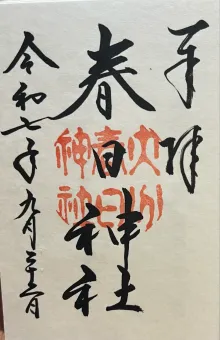 奉拝
春日神社
令和七年九月二十三日
大分
春日
神社